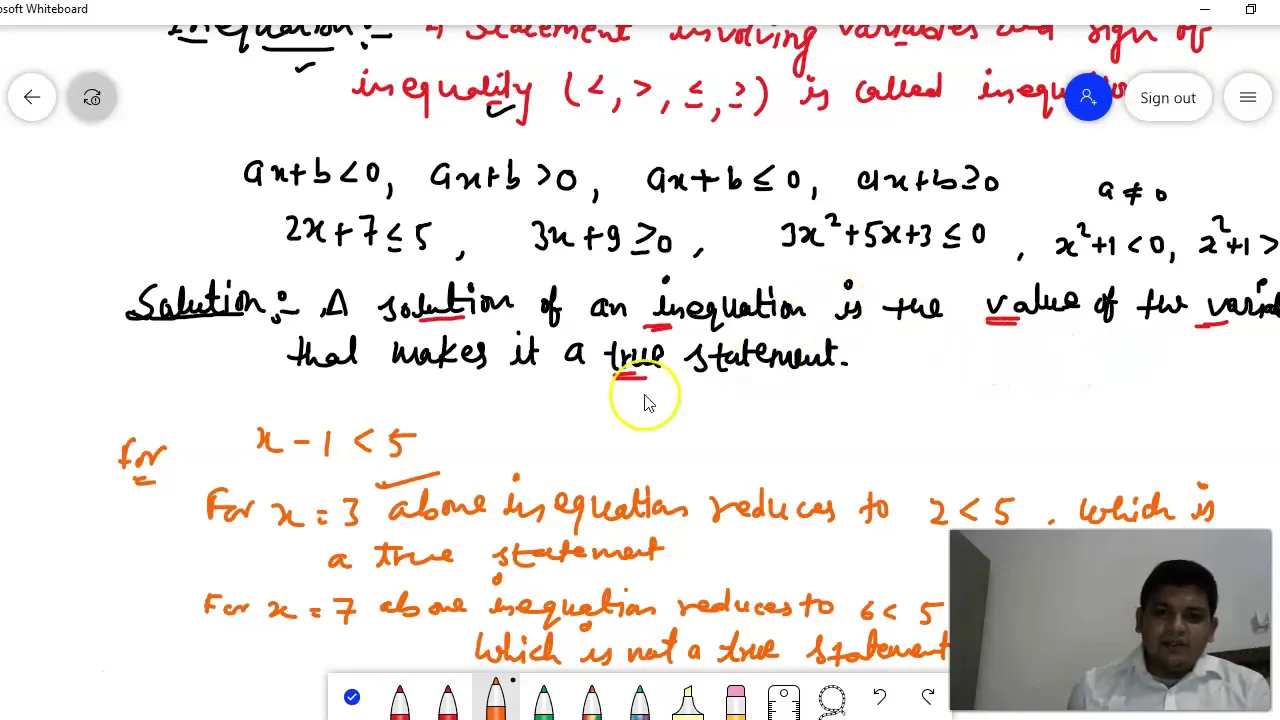 osoft Whiteboard
Inequation:- A statement involving variables and sign of
inequality (<, >, ≤, ≥) is called
Sign out
ax+b<0, ax+b >0, ax+b ≤ 0, ax+b ≥0 a ≠ 0
2x+7 ≤ 5, 3x+9 ≥0, 3x²+5x+3 ≤ 0, x²+1 <0, x²+1 >
Solution:- A solution of an inequation is the value of the
that makes it a true statement.
for x - 1 < 5
For x = 3 above inequation reduces to 2 < 5. Which is
a true statement
For x = 7 above inequation reduces to 6 < 5
Which is not a true statement